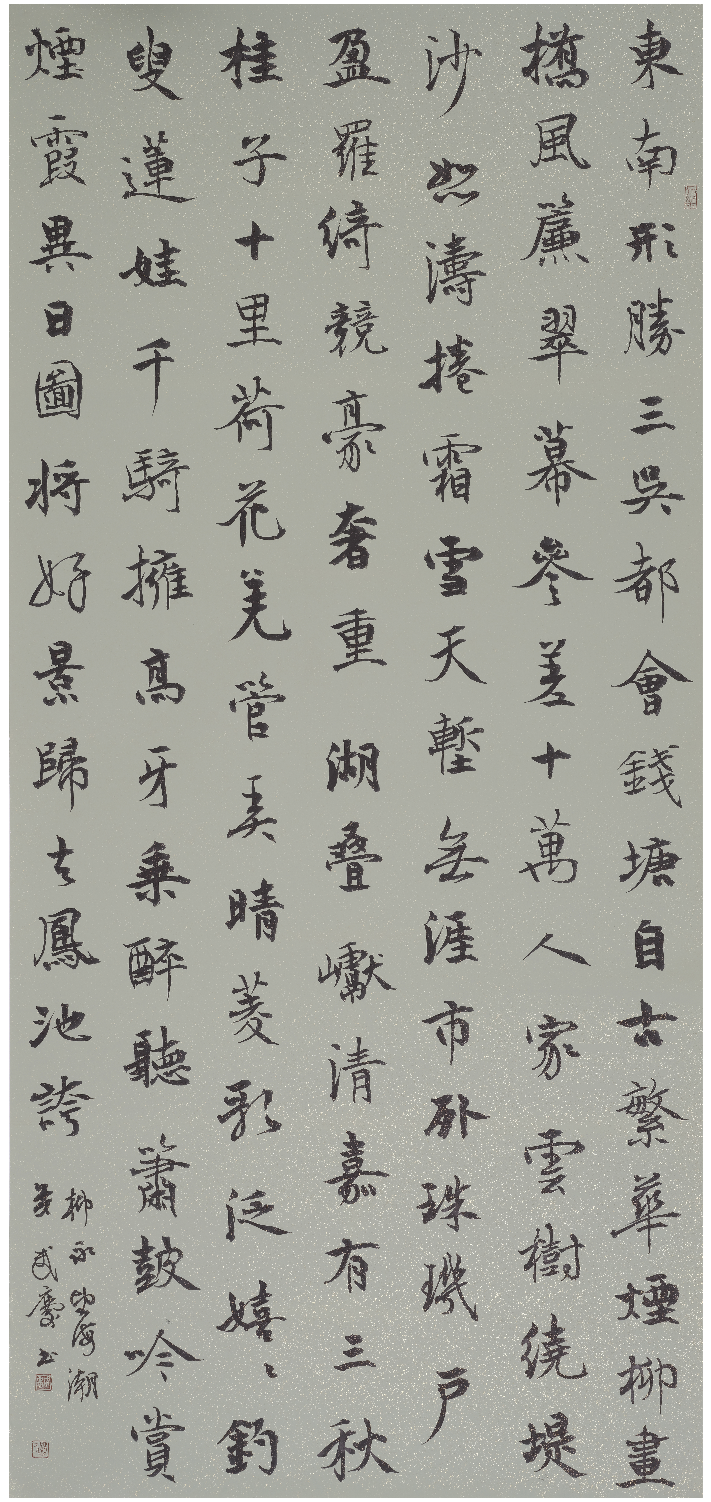 東南形勝三吳都會錢塘自古繁華煙柳畫
橋風簾翠幕參差十萬人家雲樹繞堤
沙怒濤捲霜雪天塹無涯市列珠璣戶
盈羅綺競豪奢重湖叠巘清嘉有三秋
桂子十里荷花羌管弄晴菱歌泛嬉〻釣
叟蓮娃千騎擁高牙乘醉聽簫鼓吟賞
煙霞異日圖將好景歸去鳳池誇
柳永望海潮
武慶书